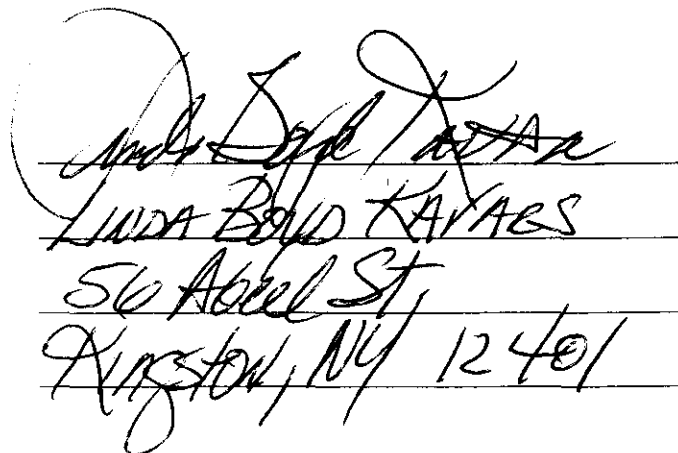 Linda Boyd Kavars
LINDA BOYD KAVARS
56 Abeel St,
Kingston, NY 12401